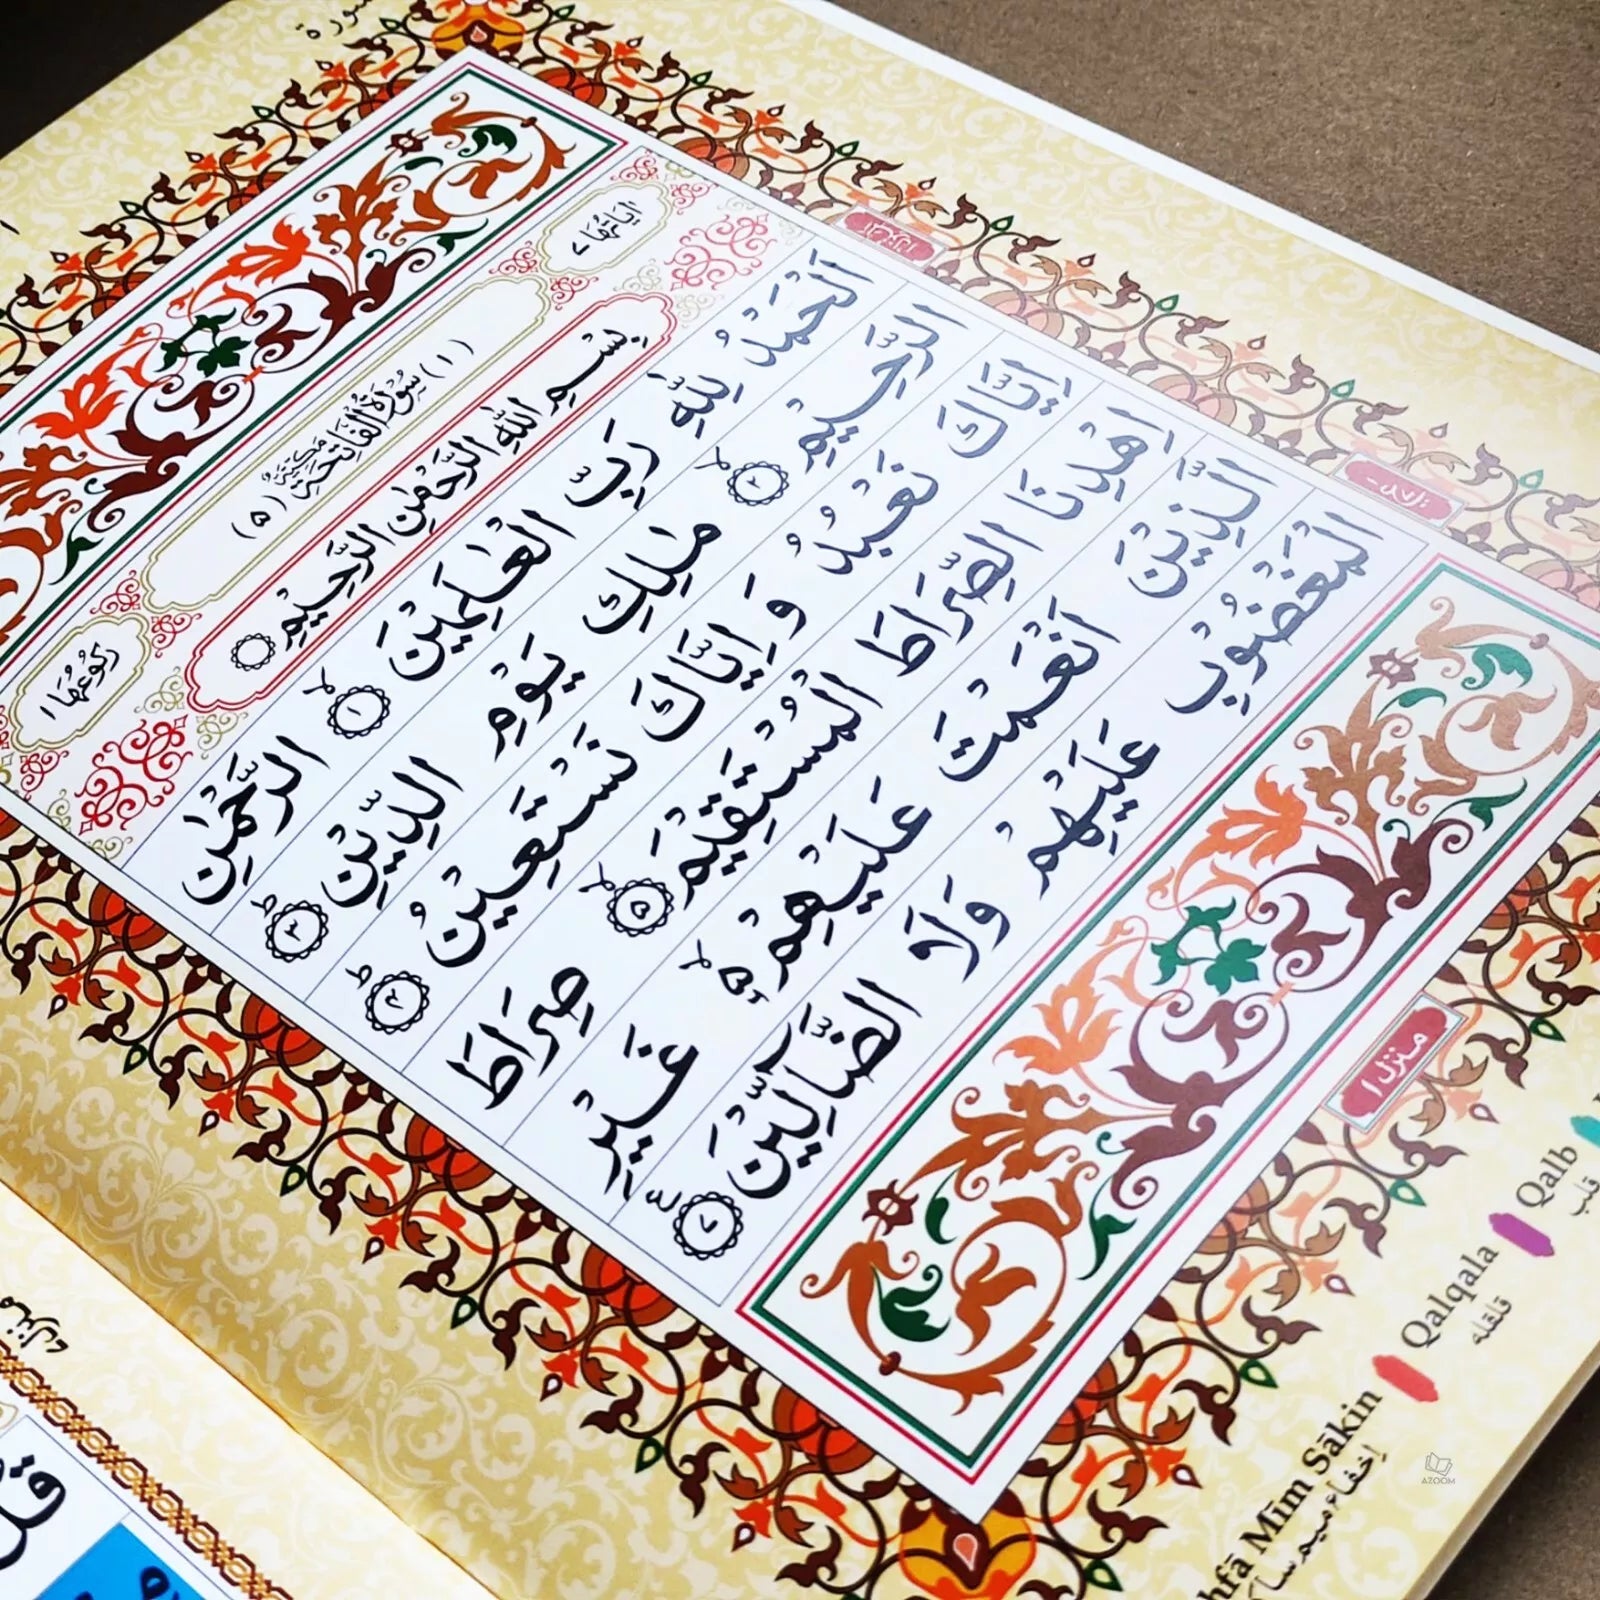 سورة
اٰيَاتُهَا ٧
(١) سُوْرَةُ الْفَاتِحَةِ مَكِّيَّةٌ (٥)
رُكُوْعُهَا ١
بِسْمِ اللّٰهِ الرَّحْمٰنِ الرَّحِيْمِ
اَلْحَمْدُ لِلّٰهِ رَبِّ الْعَالَمِيْنَ ۙ ١ الرَّحْمٰنِ
الرَّحِيْمِ ۙ ٢ مٰلِكِ يَوْمِ الدِّيْنِ ؕ ٣
اِيَّاكَ نَعْبُدُ وَاِيَّاكَ نَسْتَعِيْنُ ؕ ٤
اِهْدِنَا الصِّرَاطَ الْمُسْتَقِيْمَ ۙ ٥ صِرَاطَ
الَّذِيْنَ اَنْعَمْتَ عَلَيْهِمْ ۙ ۵ غَيْرِ
الْمَغْضُوْبِ عَلَيْهِمْ وَلَا الضَّآلِّيْنَ ٧
منزل ١
Qalb
قلب
Qalqala
قلقله
hfā Mīm Sākin
إخفاء ميم سا
AZOOM